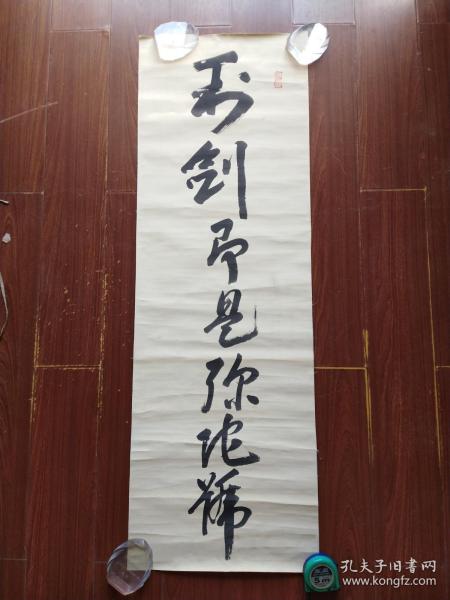 利劍即是弥陀號
5m
孔夫子旧书网
www.kongfz.com